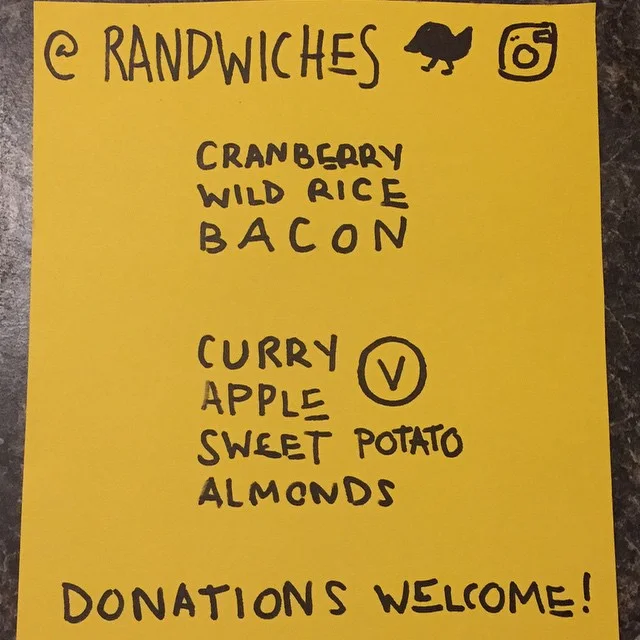 @ RANDWICHES
CRANBERRY
WILD RICE
BACON
CURRY V
APPLE
SWEET POTATO
ALMONDS
DONATIONS WELCOME!